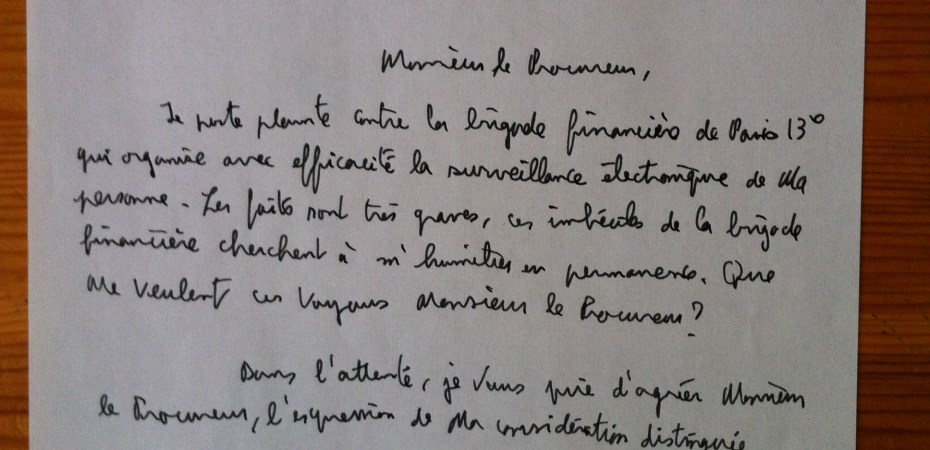 Monsieur le Procureur,
Je porte plainte contre la brigade financière de Paris 13°
qui organise avec efficacité la surveillance électronique de ma
personne. Les faits sont très graves, ces imbéciles de la brigade
financière cherchent à m'humilier en permanence. Que
me veulent ces voyous Monsieur le Procureur ?
Dans l'attente, je vous prie d'agréer Monsieur
le Procureur, l'expression de ma considération distinguée